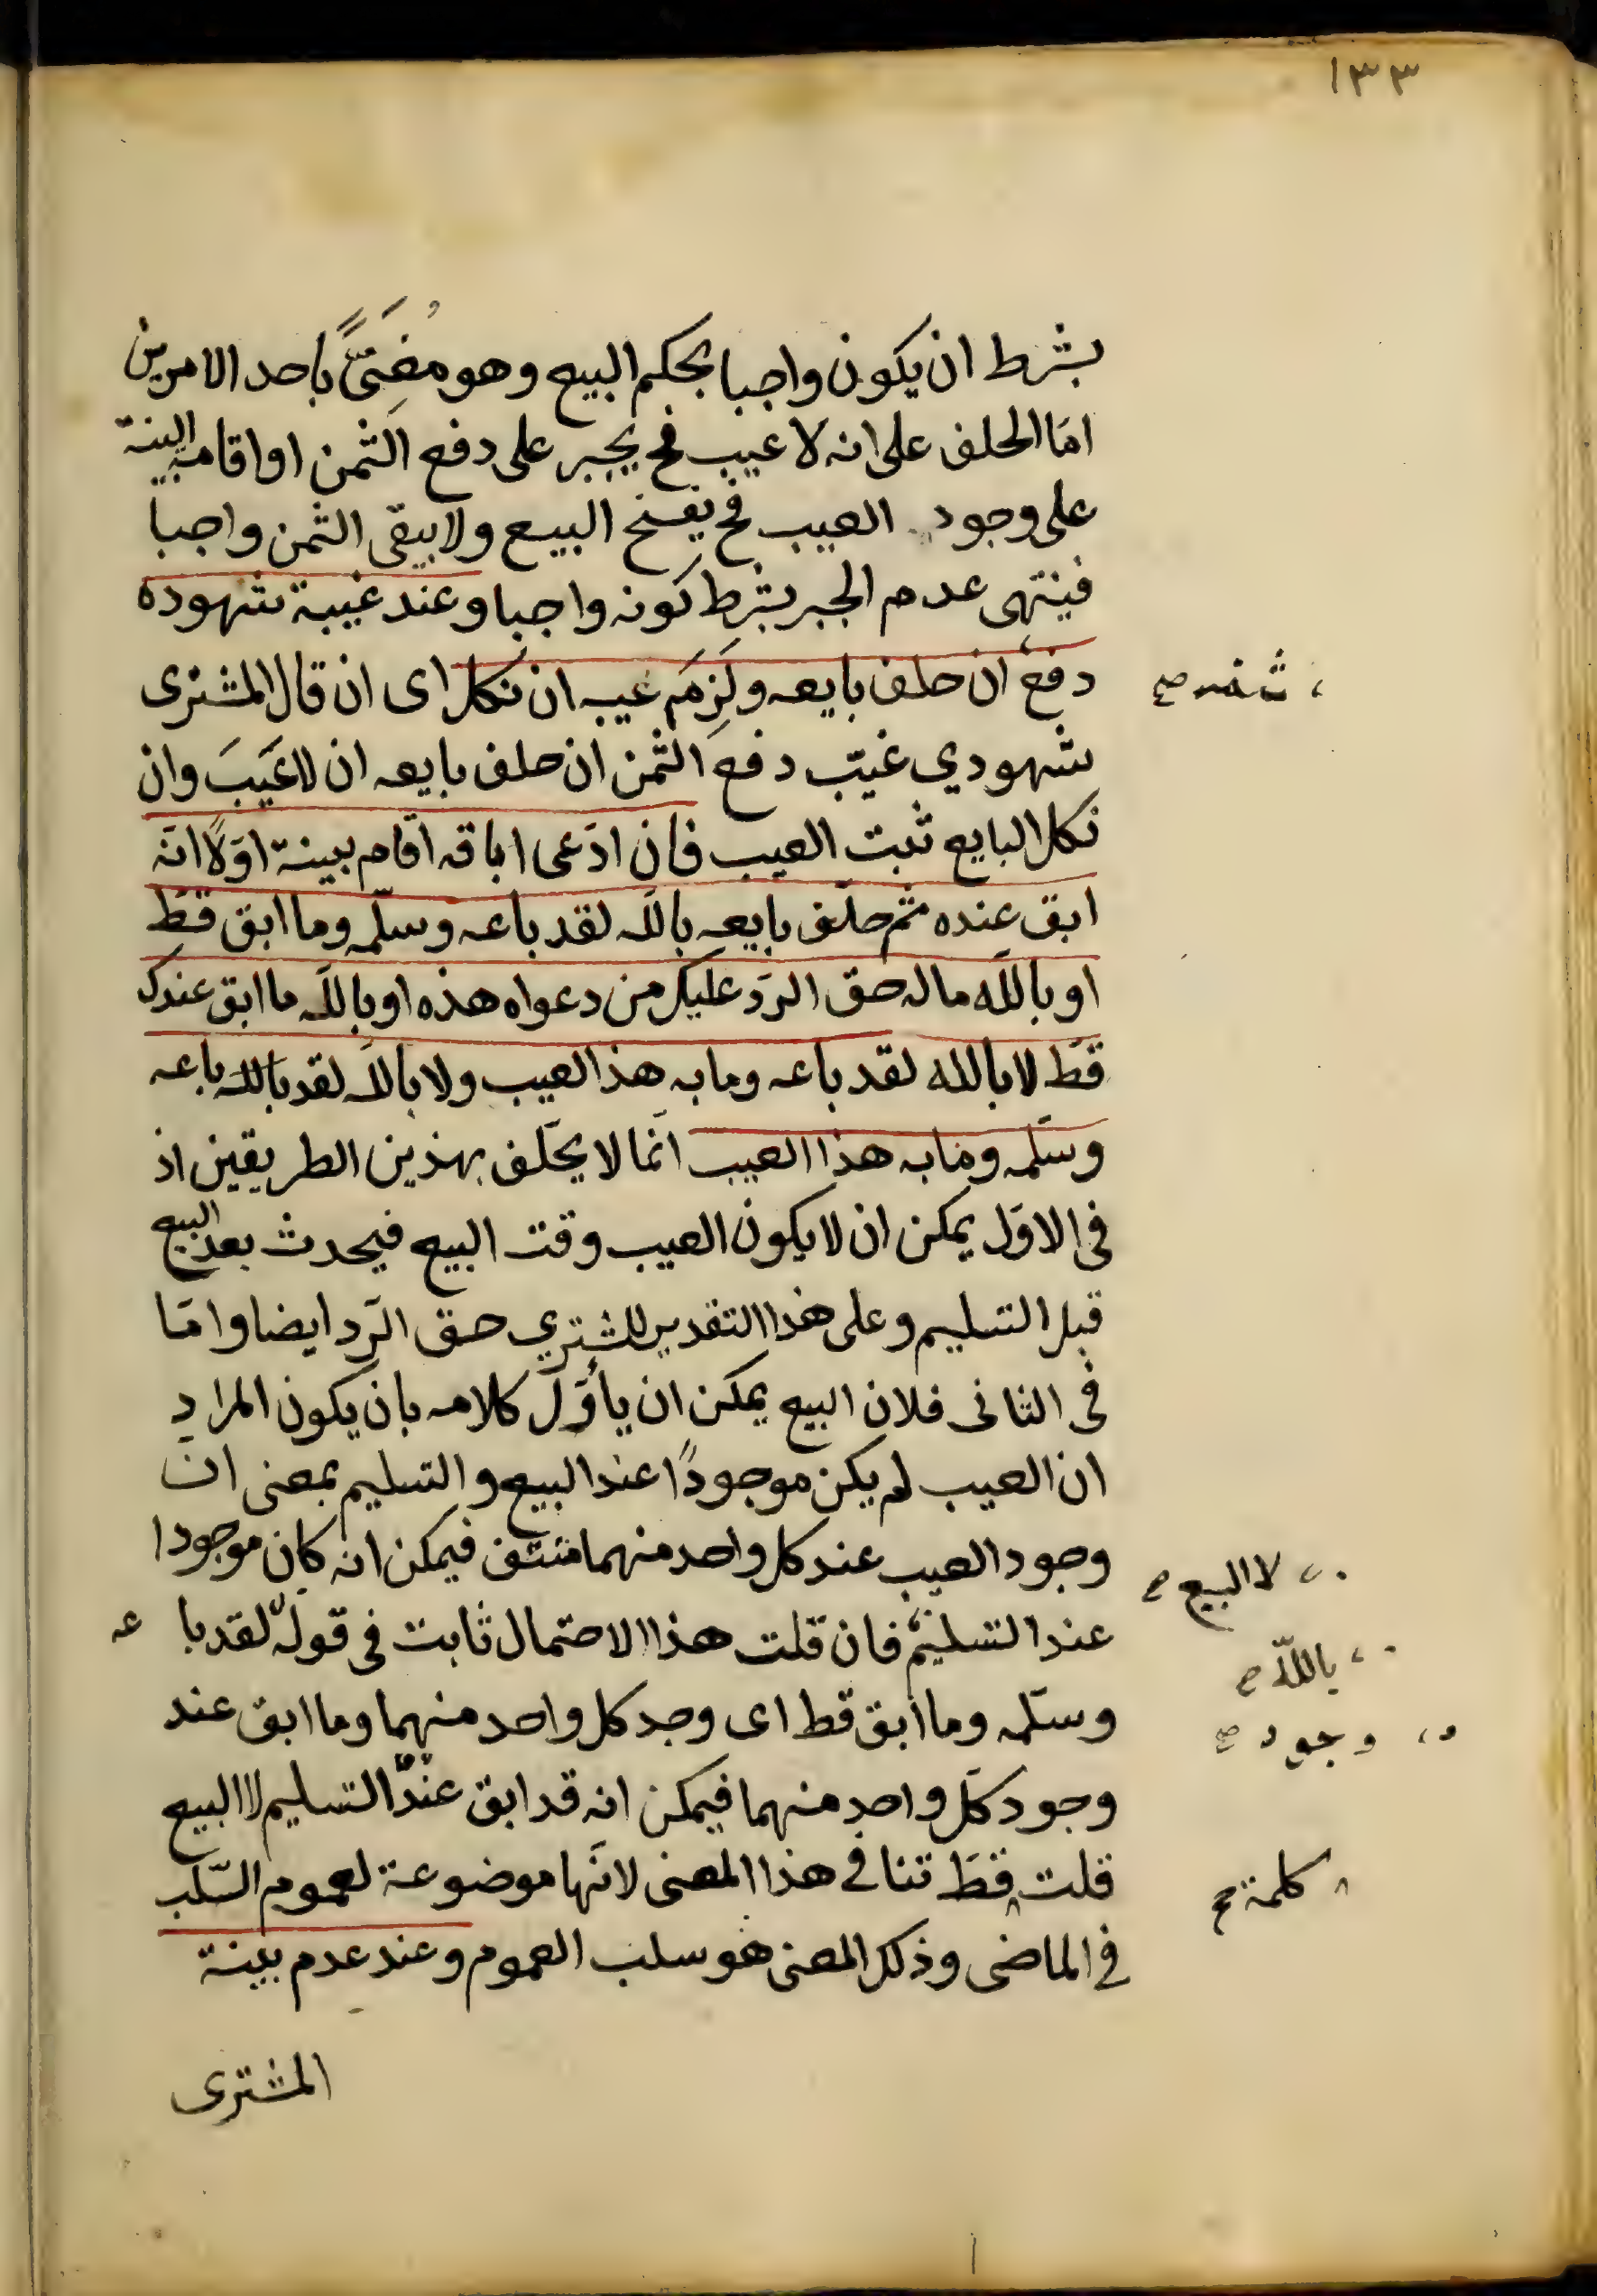 ١٣٣
بشرط ان يكون واجبا بحكم البيع وهو مُغَيًّى باحد الامرين
امّا الحلف على انه لا عيب فح يجبر على دفع الثمن او اقامة البينة
على وجود العيب فح يفسخ البيع ولا يبقى الثمن واجبا
فينتهى عدم الجبر بشرط كونه واجبا وعند غيبة شهوده
دفع ان حلف بايعه ولَزِمَ عيبه ان نكل اى ان قال المشترى
ثمنه صح
شهودي غيّب دفع الثمن ان حلف بايعه ان لا عَيبَ وان
نكل البايع ثبت العيب فان ادّعى اباقه اقام بينة اوّلًا انّه
ابق عنده ثم حلّف بايعه باللّه لقد باعه وسلّمه وما ابق قطّ
او باللّه ماله حق الردّ عليك من دعواه هذه او باللّه ما ابق عندك
قطّ لا بالله لقد باعه وما به هذا لعيب ولا باللّه لقد بالله باعه
وسلّمه وما به هذا العيب انّما لا يحلّف بهذين الطريقين اذ
فى الاوّل يمكن ان لا يكون العيب وقت البيع فيحدث بعد البيع
قبل التسليم وعلى هذا التقدير للمشتري حق الرّد ايضا وامّا
فى الثانى فلان البيع يمكن ان يأوّل كلامه بان يكون المراد
ان العيب لم يكن موجودًا عند البيع والتسليم بمعنى انّ
وجود العيب عند كل واحد منهما منتف فيمكن انه كان موجودا
لا البيع صح
عند التسليم فان قلت هذا الاحتمال ثابت فى قوله لقد باعه
باللّه صح
وسلّمه وما ابق قط اى وجد كل واحد منهما وما ابق عند
وجود صح
وجود كل واحد منهما فيمكن انه قد ابق عند التسليم لا البيع
قلت قطّ تنافى هذا المعنى لانّها موضوعة لعموم السّلب
كلمة صح
فى الماضى وذلك المعنى هو سلب العموم وعند عدم بينة
المشترى